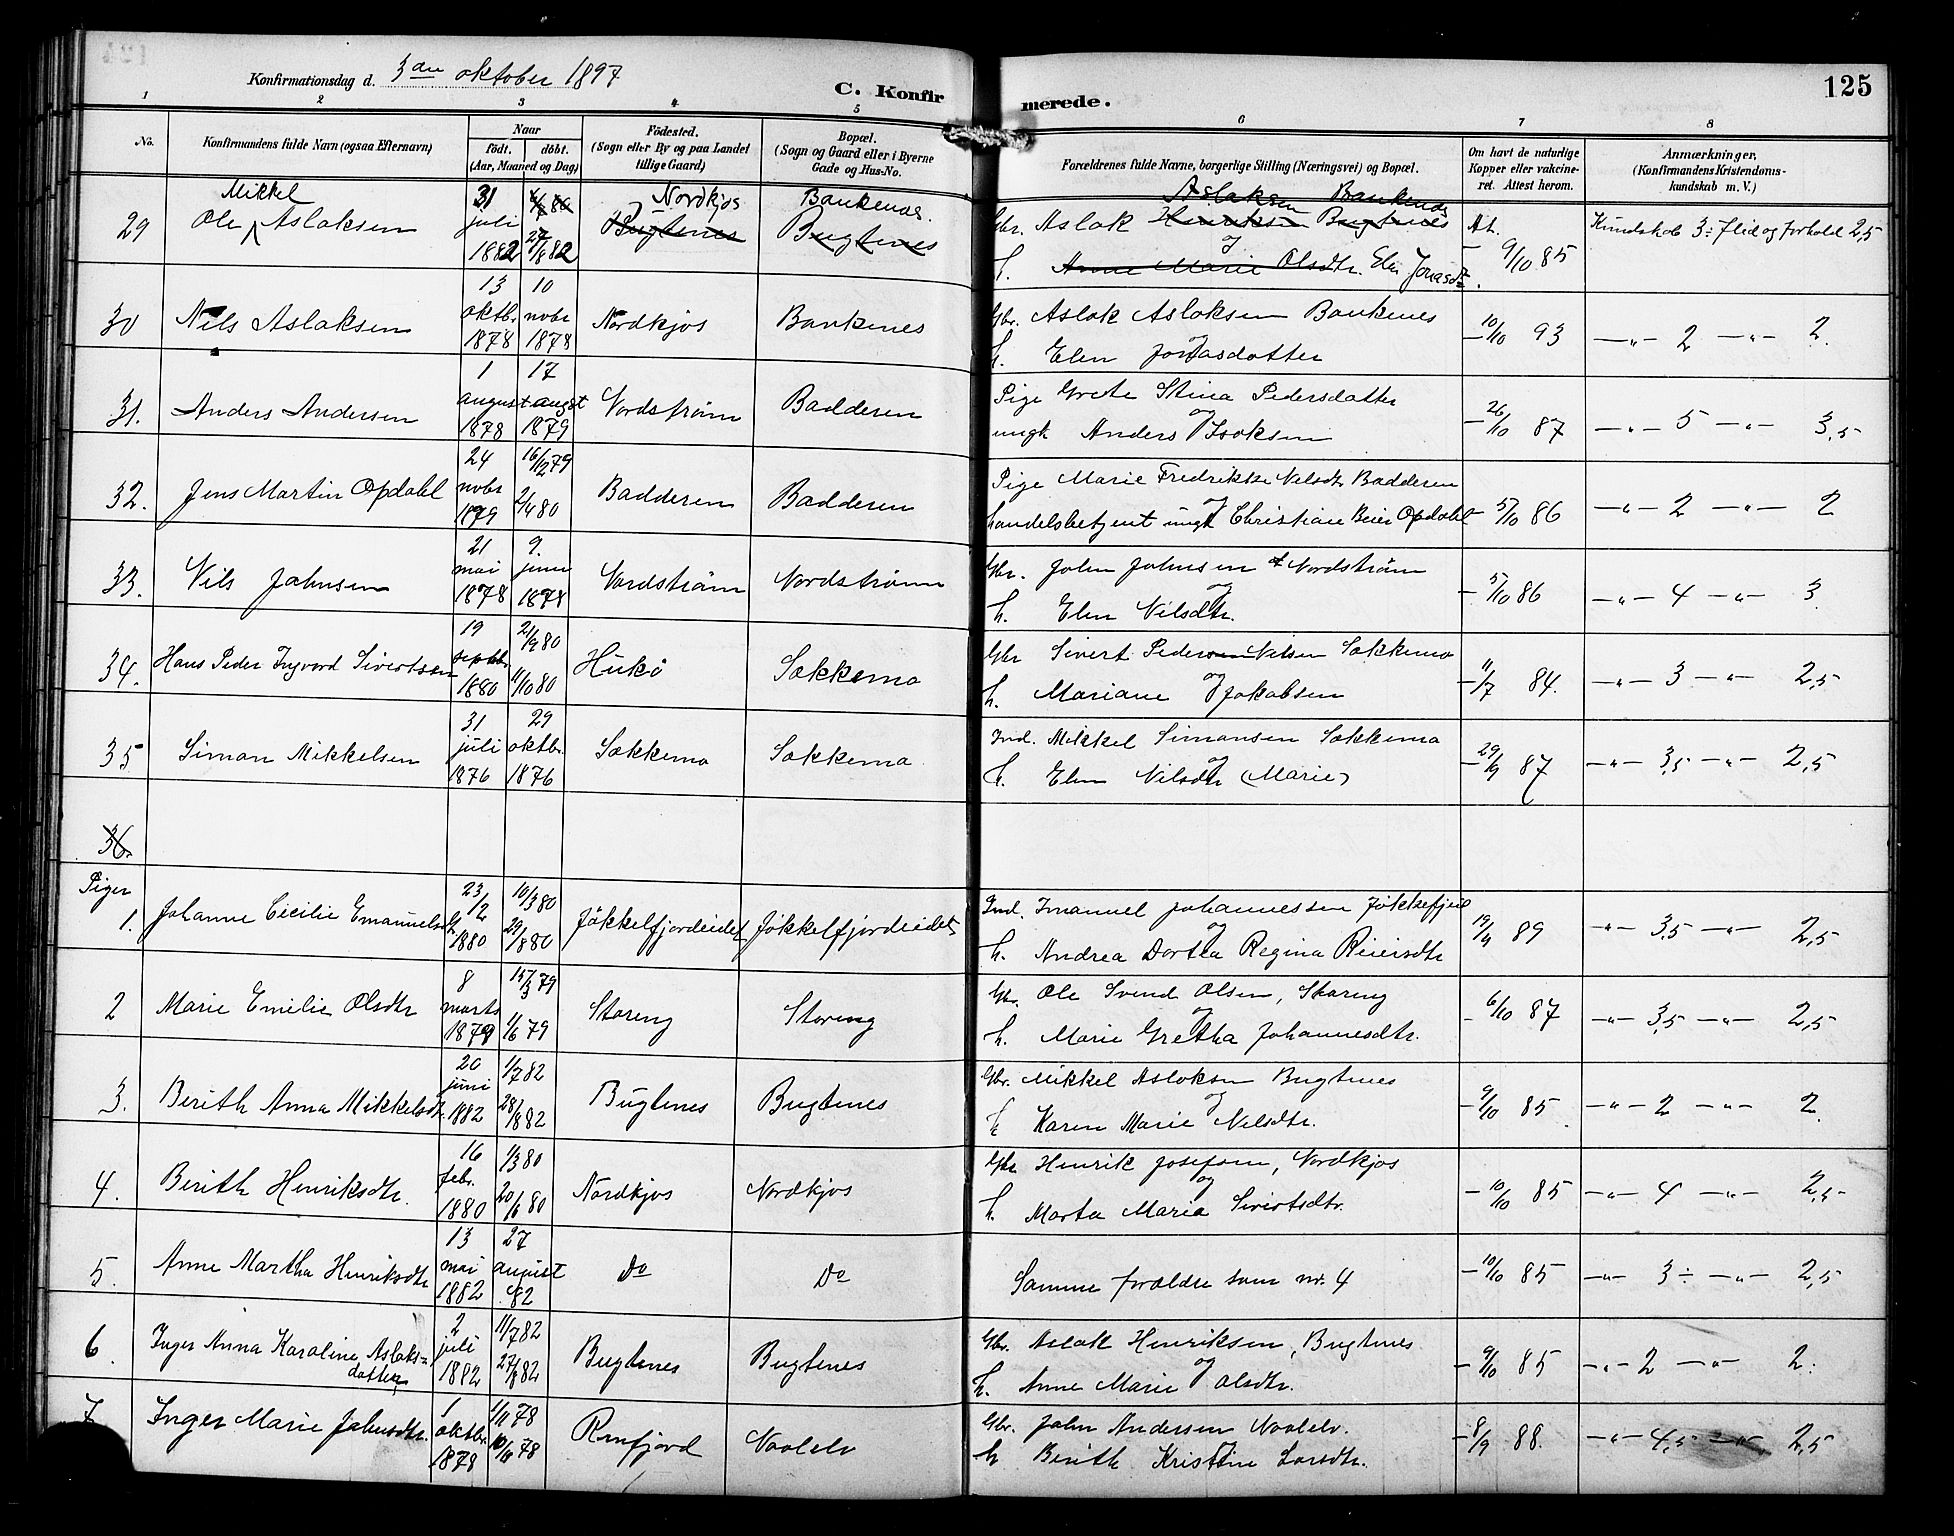 Konfirmationsdag d. 3die oktober 1897
C. Konfir merede. 125
1 2 3 4 5 6 7 8
No.
Konfirmandens fulde Navn (ogsaa Efternavn)
Naar
födt. döbt.
(Aar, Maaned og Dag)
Födested.
(Sogn eller By og paa Landet
tillige Gaard)
Bopæl.
(Sogn og Gaard eller i Byerne
Gade og Hus-No.
Forældrenes fulde Navne, borgerlige Stilling (Næringsvei) og Bopæl.
Om havt de naturlige
Kopper eller vakcine-
ret. Attest herom.
Anmærkninger.
(Konfirmandens Kristendoms-
kundskab m. V.)
Mikkel
29 Ole Aslaksen
31 juli 1882
27/8 82
Nordkjos
Bugtenes
Bankenes.
Bugtenes
Aslaksen Bankenes
Gbr. Aslak Henriksen Bugtenes
og
h. Anne Marie Olsdtr. Elen Jonasdtr.
At. 9/10 85
Kundskab 3÷ flid og forhold 2,5
30 Nils Aslaksen
13 oktbr. 1878
10 novbr 1878
Nordkjos
Bankenes
Gbr. Aslak Aslaksen Bankenes
og
h. Elen Jonasdatter
— 10/10 93
—"— 2 —"— 2.
31. Anders Andersen
1 august 1878
17 augst 1879
Nordstrøm
Badderen
Pige Grete Stina Pedersdatter
og
ungk Anders Isaksen
— 26/10 87
—"— 5 —"— 3,5
32. Jens Martin Opdahl
24 novbr 1879
16/12 79
2/4 80
Badderen
Badderen
Pige Marie Fredrikke Nilsdtr Badderen
og
handelsbetjent ungk Christian Beier Opdahl
— 5/10 86
—"— 2 —"— 2
33. Nils Johnsen
21 mai 1878
9. juni 1878
Nordstrøm
Nordstrøm
Gbr. John Johnsen Nordstrøm
og
h. Elen Nilsdtr.
— 5/10 86
—"— 4 —"— 3.
34. Hans Peder Ingvard Sivertsen
19 septbr. 1880
21/9 80
11/10 80
Hukø
Sakkemo
Gbr Sivert Pedersen Nilsen Sakkemo
og
h. Mariane Jakobsen
— 11/7 84.
—"— 3 —"— 2,5
35 Simon Mikkelsen
31 juli 1876
29 oktbr. 1876
Sakkemo
Sakkemo
Ind. Mikkel Simonsen Sakkemo
og
h. Elen Nilsdtr (Marie)
— 29/9 87
—"— 3,5 —"— 2,5
36.
Piger
1. Johanne Cecilie Emanuelsdtr
23/2 1880
10/3 80
29/8 80
Jökkelfjordeidet
Jökkelfjordeidet
Ind. Imanuel Johannessen Jökkelfjeid
og
h. Andrea Dortea Regina Reiersdtr
19/9 89
—"— 3,5 —"— 2,5
2 Marie Emilie Olsdtr
8 marts 1879
15/3 79
1/6 79
Storeng
Storeng
Gbr. Ole Svend Olsen, Storeng
og
h. Marie Gretha Johannesdtr.
— 6/10 87
—"— 3,5 —"— 2,5
3. Berith Anna Mikkelsdtr.
20 juni 1882
1/7 82
28/8 82
Bugtenes
Bugtenes
Gbr. Mikkel Aslaksen Bugtenes
og
h Karen Marie Nilsdtr.
— 9/10 85
—"— 2 —"— 2.
4. Berith Henriksdtr.
16 febr. 1880
1/3 80
20/6 80
Nordkjos
Nordkjos
Gbr Henrik Josefsen, Nordkjos
og
h. Marta Maria Sivertsdtr.
— 10/10 85
—"— 4 —"— 2,5
5. Anne Martha Henriksdtr
13 mai 1882
27 august 82
Do
Do
Samme forældre som nr. 4
— 10/10 85
—"— 3÷ —"— 2,5
6. Inger Anna Karoline Aslaks-
datter
2 juli 1882
11/7 82
27/8 82
Bugtenes
Bugtenes
Gbr. Aslak Henriksen, Bugtenes
og
h. Anne Marie Olsdtr.
— 9/10 85
—"— 2 —"— 2.
7 Inger Marie Johnsdtr.
1 oktbr. 1878
1/11 78
10/11 78
Renfjord
Navlelv
Gbr. John Andersen Navlelv.
h Berith Kristine Larsdtr.
— 8/9 88.
—"— 4,5 —"— 2,5